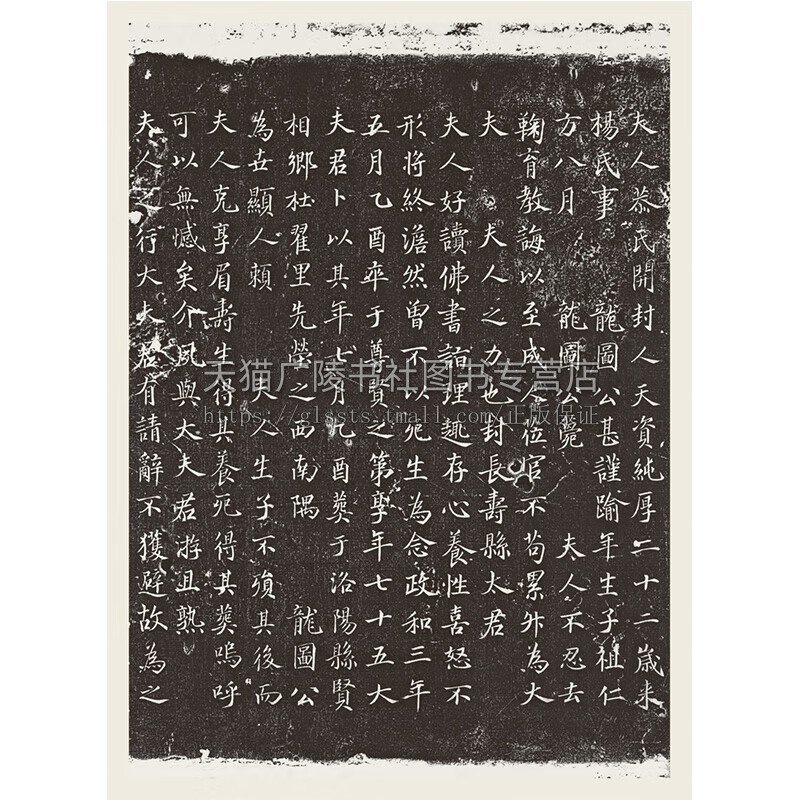 夫人慕氏開封人天資純厚二十二歲来
楊氏事 龍圖公甚謹踰年生子祖仁
方八月 龍圖公薨 夫人不忍去
鞠育教誨以至成人位官不苟累升為大
夫 夫人之力也封長壽縣太君
夫人好讀佛書詣理趣存心養性喜怒不
形將終澹然曾不以死生為念政和三年
五月乙酉卒于尊賢之第享年七十五大
夫君卜以其年七月乙酉葬于洛陽縣賢
相鄉杜翟里先塋之西南隅 龍圖公
為世顯人賴 夫人生子不殞其後而
夫人克享眉壽生得其養死得其葬嗚呼
可以無憾矣介夙與大夫君游且熟
夫人之行大夫君有請辭不獲避故為之
天猫广陵书社图书专营店
https://glssts.tmall.com/正版保证